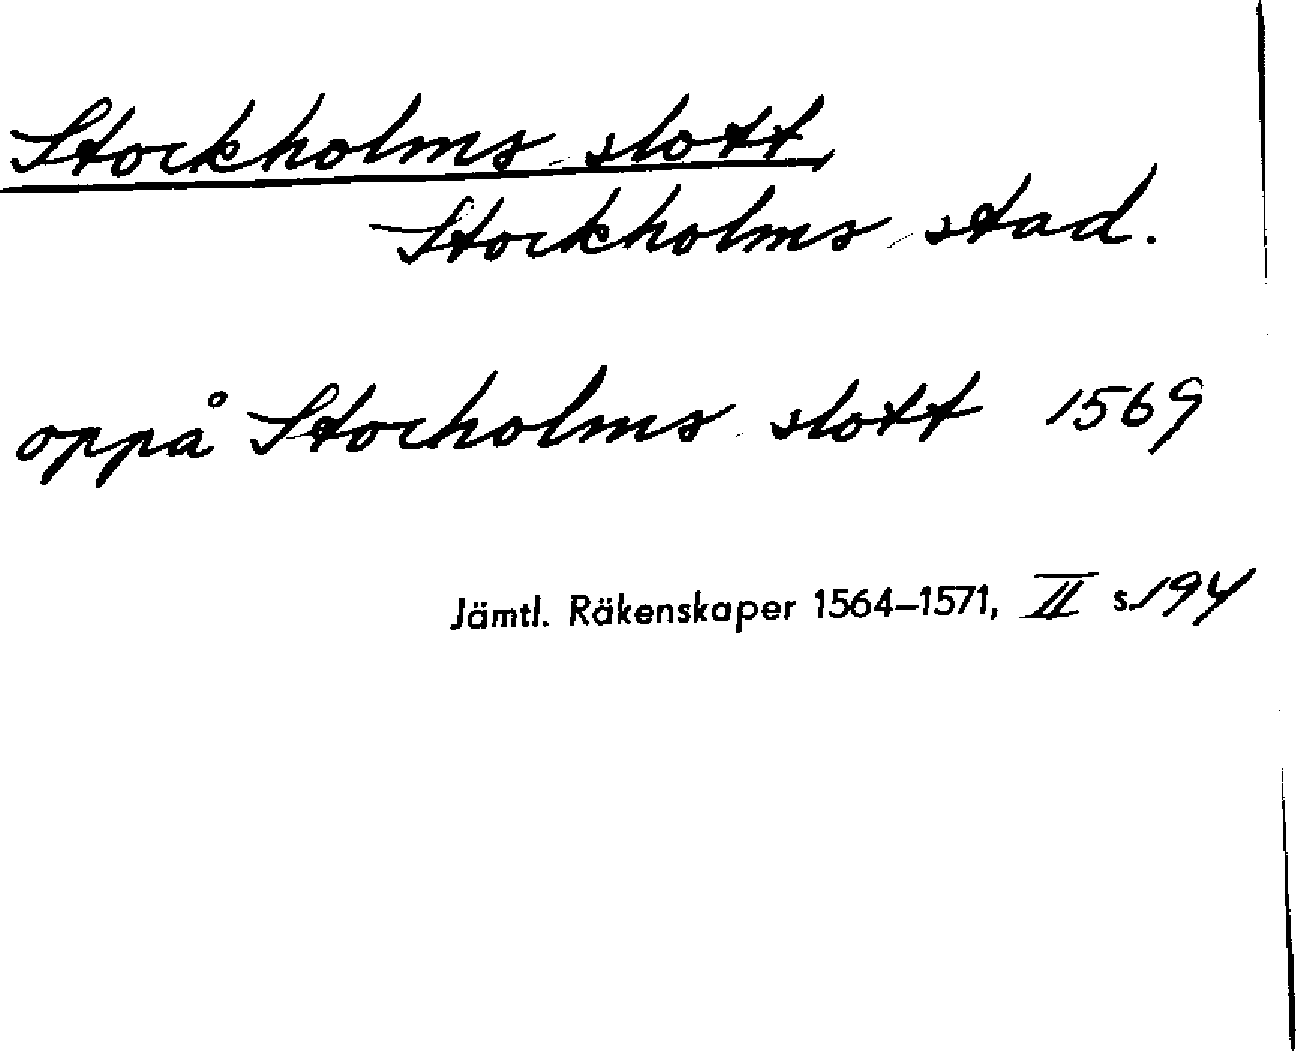 Stockholms slott,
Stockholms stad.
oppå Stocholms slott 1569
Jämtl. Räkenskaper 1564–1571, II s. 194